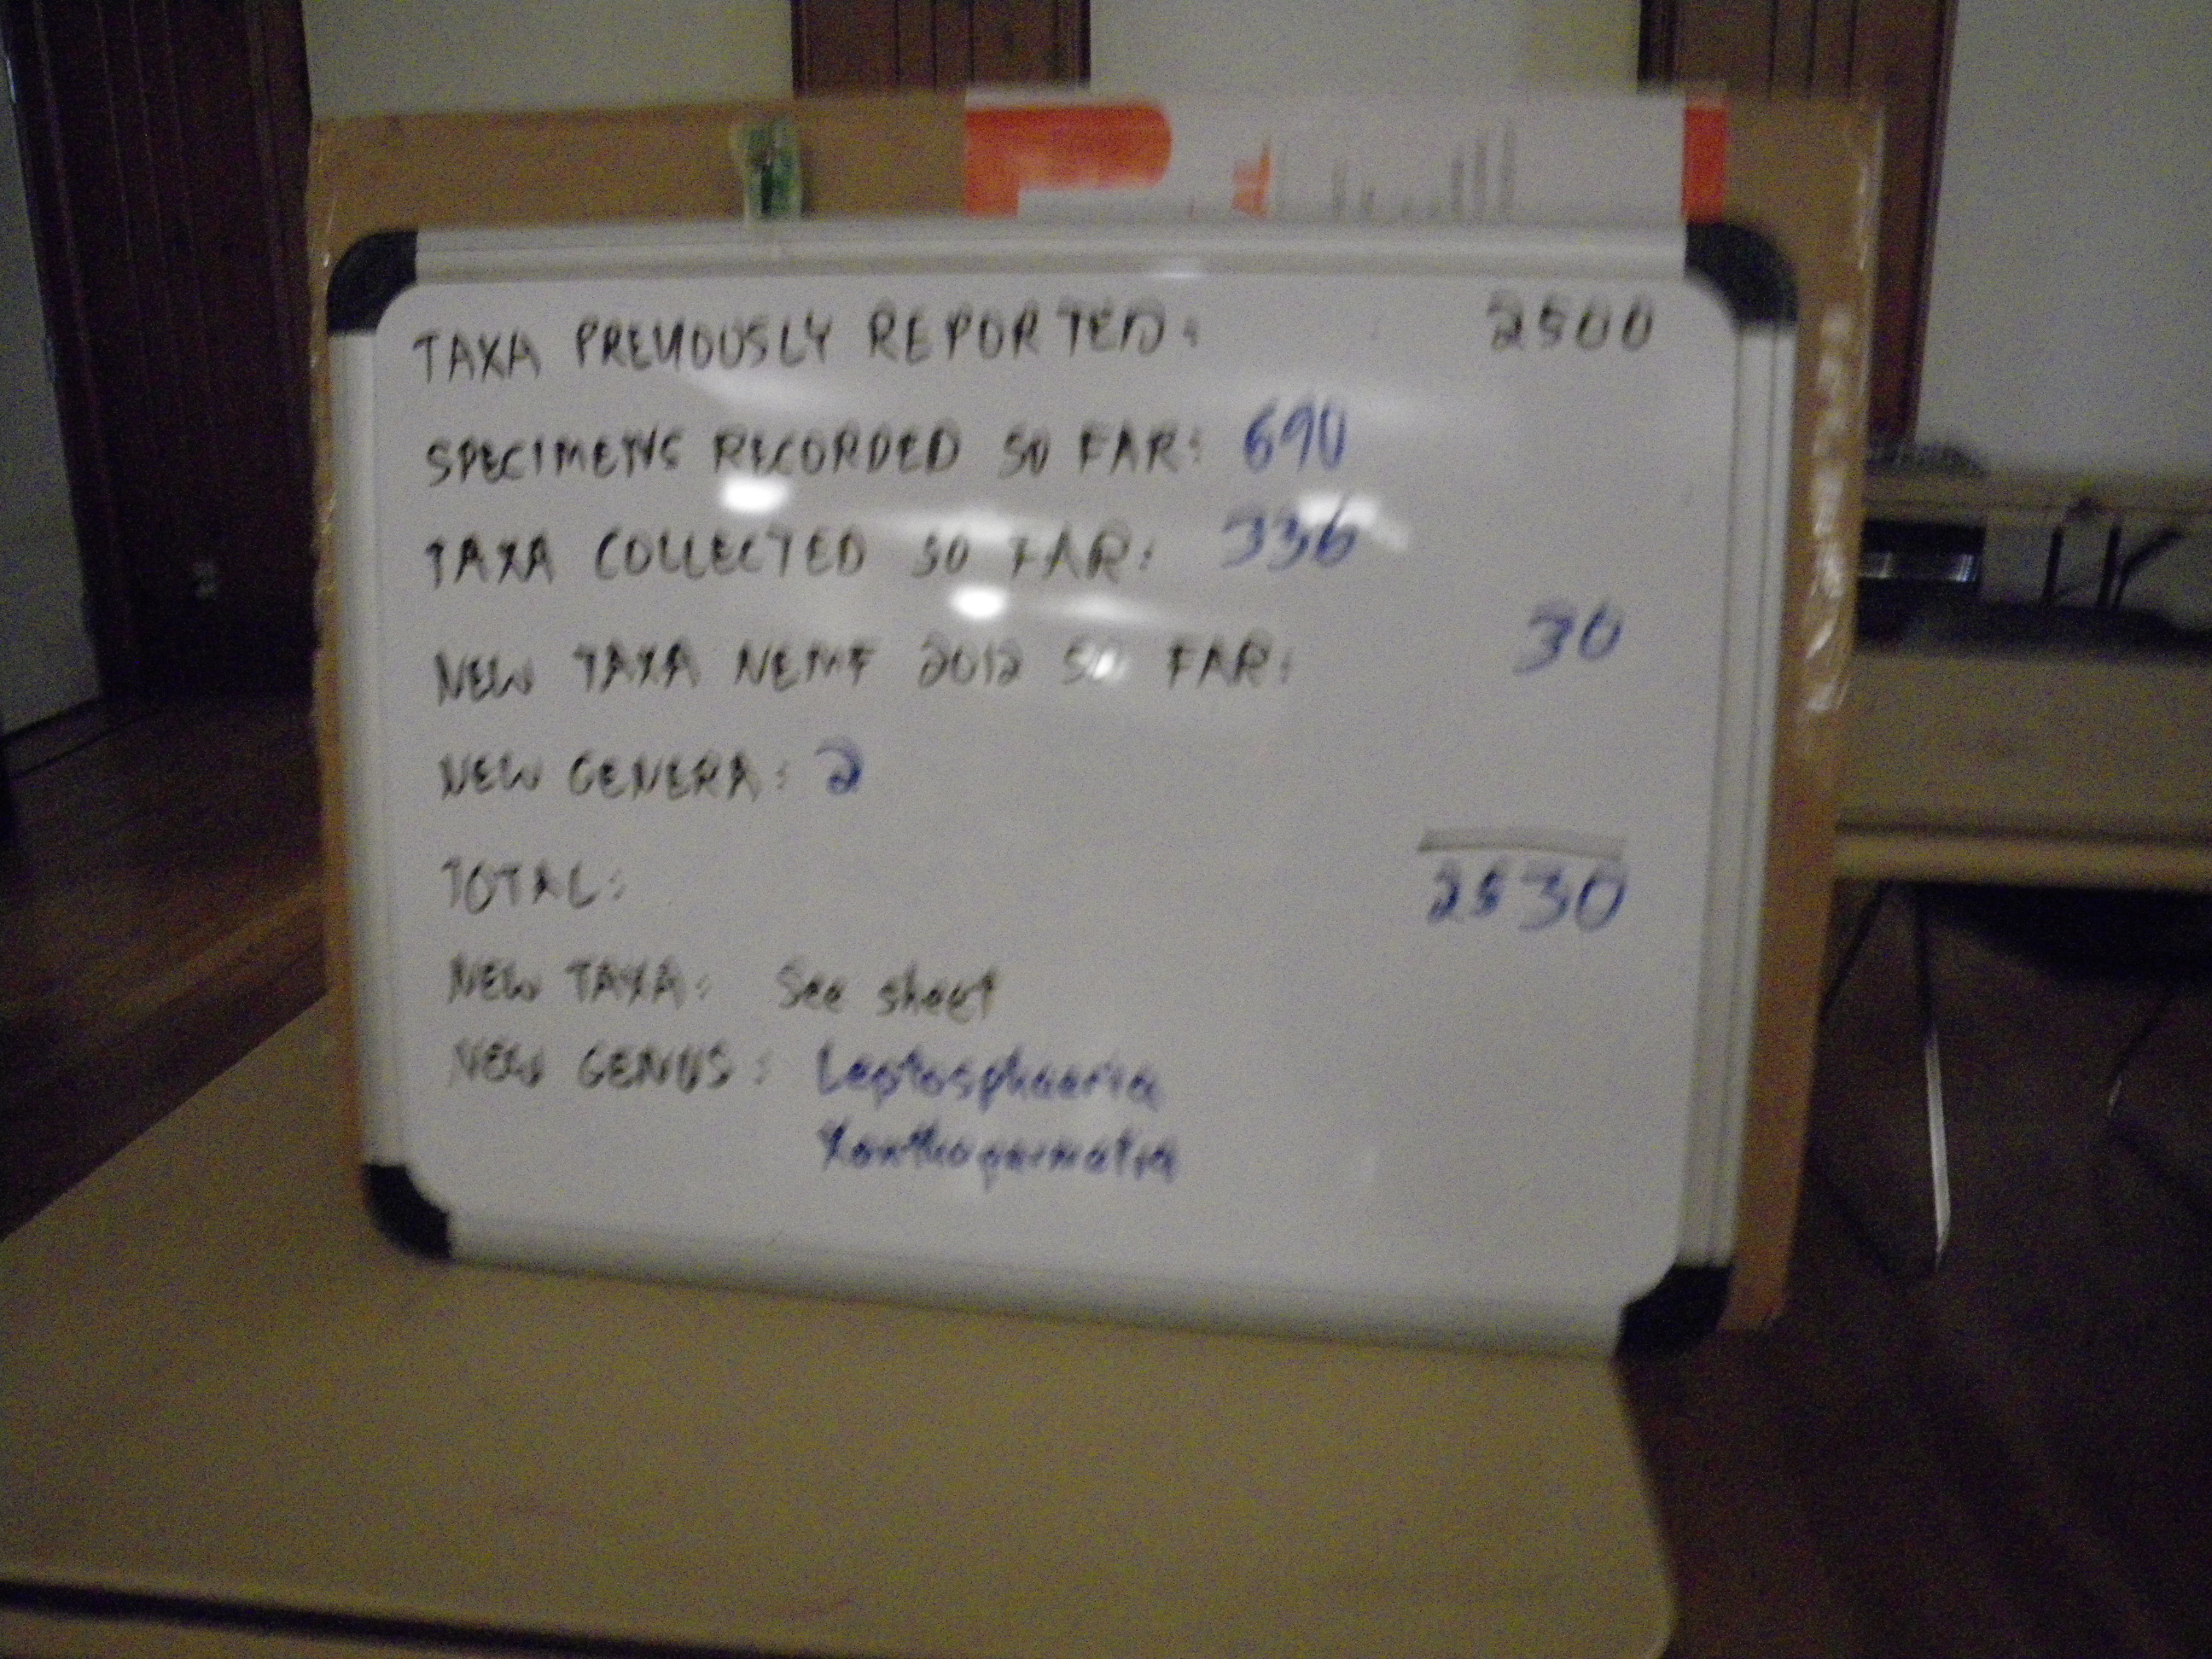 TAXA PREVIOUSLY REPORTED: 2500
SPECIMENS RECORDED SO FAR: 690
TAXA COLLECTED SO FAR: 336
NEW TAXA NEMF 2012 SO FAR: 30
NEW GENERA: 2
TOTAL: 2530
NEW TAXA: See sheet
NEW GENUS: Leptosphaeria
Xanthoparmelia